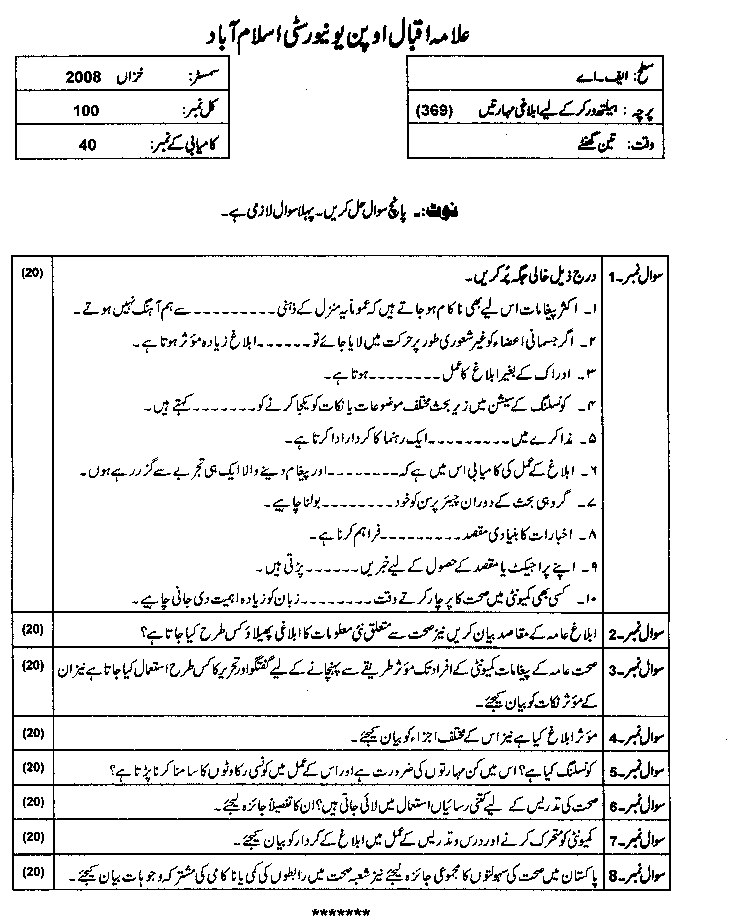 علامہ اقبال اوپن یونیورسٹی اسلام آباد
سطح: ایف۔اے
سمسٹر: خزاں 2008
پرچہ: ہیلتھ ورکر کے لیے ابلاغی مہارتیں (369)
کل نمبر: 100
وقت: تین گھنٹے
کامیابی کے نمبر: 40
نوٹ:۔ پانچ سوال حل کریں۔ پہلا سوال لازمی ہے۔
سوال نمبر۔1 درج ذیل خالی جگہ پُر کریں۔ (20)
۱۔ اکثر پیغامات اس لیے بھی ناکام ہو جاتے ہیں کہ عموماً یہ منزل کے ذہنی ۔۔۔۔۔۔۔۔۔ سے ہم آہنگ نہیں ہوتے۔
۲۔ اگر جسمانی اعضاء کو غیر شعوری طور پر حرکت میں لایا جائے تو ۔۔۔۔۔۔ ابلاغ زیادہ مؤثر ہوتا ہے۔
۳۔ ادراک کے بغیر ابلاغ کا عمل ۔۔۔۔۔۔۔۔ ہوتا ہے۔
۴۔ کونسلنگ کے سیشن میں زیر بحث مختلف موضوعات یا نکات کو یکجا کرنے کو ۔۔۔۔۔۔۔ کہتے ہیں۔
۵۔ مذاکرے میں ۔۔۔۔۔۔۔۔۔ ایک رہنما کا کردار ادا کرتا ہے۔
۶۔ ابلاغ کے عمل کی کامیابی اس میں ہے کہ ۔۔۔۔۔۔۔۔ اور پیغام دینے والا ایک ہی تجربے سے گزر رہے ہوں۔
۷۔ گروہی بحث کے دوران چیئر پرسن کو خود ۔۔۔۔۔۔۔۔ بولنا چاہیے۔
۸۔ اخبارات کا بنیادی مقصد ۔۔۔۔۔۔۔۔۔ فراہم کرنا ہے۔
۹۔ اپنے پراجیکٹ یا مقصد کے حصول کے لیے خبریں ۔۔۔۔۔۔ پڑتی ہیں۔
۱۰۔ کسی بھی کمیونٹی میں صحت کا پرچار کرتے وقت ۔۔۔۔۔۔۔۔ زبان کو زیادہ اہمیت دی جانی چاہیے۔
سوال نمبر۔2 ابلاغ عامہ کے مقاصد بیان کریں نیز صحت سے متعلق نئی معلومات کا ابلاغی پھیلاؤ کس طرح کیا جاتا ہے؟ (20)
سوال نمبر۔3 صحت عامہ کے پیغامات کمیونٹی کے افراد تک مؤثر طریقے سے پہنچانے کے لیے گفتگو اور تحریر کا کس طرح استعمال کیا جاتا ہے نیز ان (20)
کے مؤثر نکات کو بیان کیجئے۔
سوال نمبر۔4 مؤثر ابلاغ کیا ہے نیز اس کے مختلف اجزاء کو بیان کیجئے۔ (20)
سوال نمبر۔5 کونسلنگ کیا ہے؟ اس میں کن مہارتوں کی ضرورت ہے اور اس کے عمل میں کونسی رکاوٹوں کا سامنا کرنا پڑتا ہے؟ (20)
سوال نمبر۔6 صحت کی تدریس کے لیے کتنی رسائیاں استعمال میں لائی جاتی ہیں؟ ان کا تفصیلاً جائزہ لیجئے۔ (20)
سوال نمبر۔7 کمیونٹی کو متحرک کرنے اور درس و تدریس کے عمل میں ابلاغ کے کردار کو بیان کیجئے۔ (20)
سوال نمبر۔8 پاکستان میں صحت کی سہولتوں کا مجموعی جائزہ لیجئے نیز شعبہ صحت میں رابطوں کی کمی یا ناکامی کی مشترکہ وجوہات بیان کیجئے۔ (20)
*******